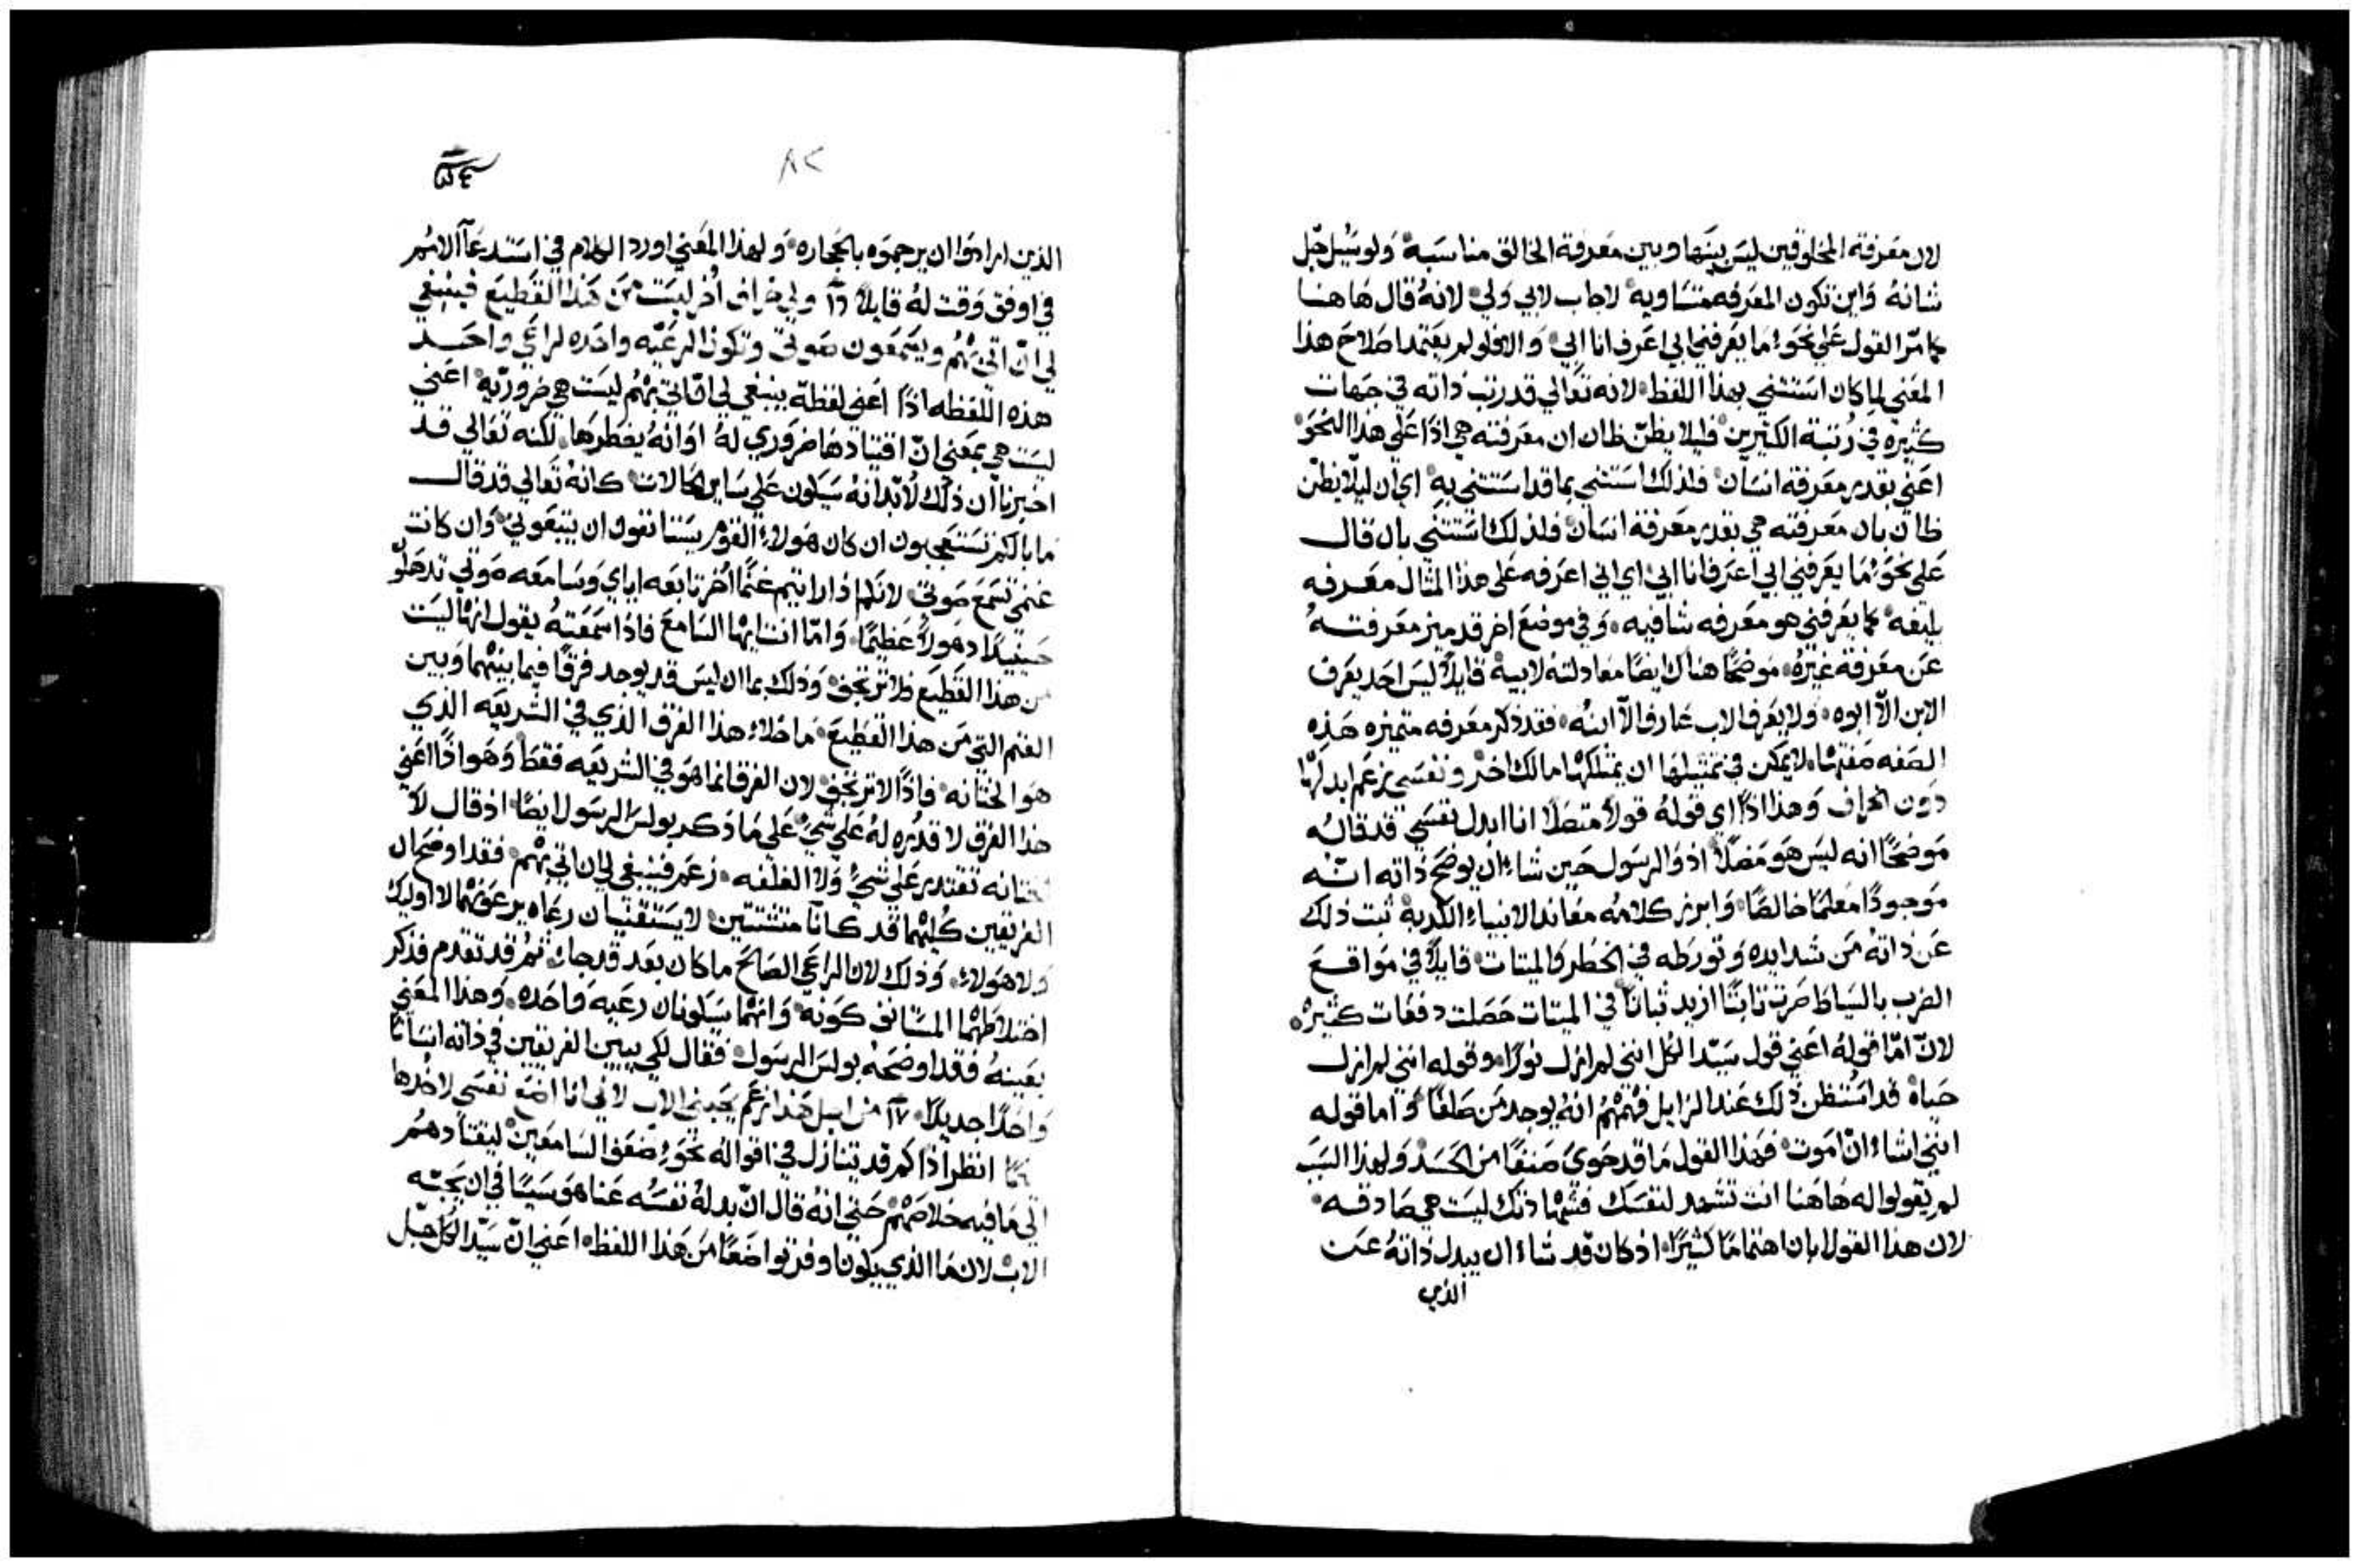 لان معرفة المخلوقين ليس بينها وبين معرفة الخالق مناسبة ولو سُيل جل
شانهُ واين تكون المعرفه متساويه لاجاب لابي ولي لانهُ قال هاهنا
كما مرّ القول علي نحو ما يعرفني ابي اعرف انا ابي والا فلو لم يعتمد اصلاح هذا
المعني لما كان استثني بهذا اللفظ لانه تعالي قد رتب ذاته في جهات
كثيره في رُتبة الكثيرين فليلا يظنّ ظان ان معرفته هي اذًا علي هذا النحو
اعني بقدر معرفة انسان فلذلك استثني بما قد استثني به اي ان ليلا يظنّ
ظان بان معرفته هي بقدر معرفة انسان فلذلك استثني بان قال
علي نحو ما يعرفني ابي اعرف انا ابي اي اني اعرفه علي هذا المثال معرفه
بليغه كما يعرفني هو معرفه شافيه وفي موضع اخر قد ميز معرفتهُ
عن معرفة غيره موضحًا هناك ايضًا معادلتهُ لابيه قايلاً ليس احد يعرف
الابن الاّ ابوه ولا يعرف الاب عارف الاّ ابنهُ فقد ذكر معرفه متميزه هذه
الصفه صفتها لا يمكن في تمثيلها ان يمتلكها مالك اخر ونفسي يزعم ابدلها
دون الخراف وهذا اذًا اي قولهُ قولاً متصلاً انا ابدل نفسي قد قالهُ
موضحًا انه ليس هو مضلاً اذ والرسول حين شاء ان يوضح ذاته انّه
موجودًا معلمًا خالصًا وابرز كلامه معاندا الانبياء الكدبة ثبت ذلك
عن ذاتهُ من شدايده وتورطه في الخطر والميتات قايلاً في مواقع
الضرب بالسياط صرت ثابتًا ازيد ثباتًا في الميتات حصلت دفعات كثيره
لانّ امّا قولهُ اعني قول سيّد الكل انني لم ازل نورًا وقوله انني لم ازل
حياة قد استُظن ذلك عند الرايل فهمهم انهُ يوجد من صلفًا واما قوله
انني اشاء انّ اموت فهذا القول ما قد حوي صنفًا من الحسد ولهذا السبب
لم يقولوا له هاهنا انت تشهد لنفسك فشهادتك ليست هي صادقه
لان هذا القول ابان اهتمامًا كثيرًا اذ كان قد شاء ان يبدل ذاتهُ عن
الذين
٨٢
الذين ارادوا ان يرجموه بالحجاره ولهذا المعني اورد الكلام في استدعآ الامُم
في اوفق وقت لهُ قايلاً ١٦ ولي خراف اُخر ليست من هذا القطيع فينبغي
لي انّ اتي بهُم ويسمعون صوتي وتكون الرعيّه واحده لراعي واحد
هذه اللفظه اذًا اعني لفظة ينبغي لي انّ اتي بهُم ليست هي ضروريّه اعني
ليست هي بمعني انّ اقتيادها ضروري لهُ او انهُ يضطرها لكنه تعالي قد
اخبرنا ان ذلك لا بدّ انهُ سيكون علي ساير الحالات كانهُ تعالي قد قال
ما بالكم تستعجبون ان كان هولاء القوم يستانفون ان يتبعوني وان كانت
غنمي تسمع صوتي لانكم اذا رايتم غنمًا اُخر تابعه اياي وسامعه صوتي تدهلون
حينيدًا دهولاً عظيمًا وامّا انت ايها السامع فاذا سمعتهُ يقول انها ليست
من هذا القطيع فلا ترتجف وذلك بما ان ليس قد يوجد فرقًا فيما بينهما وبين
الغنم التي من هذا القطيع ما خلاء هذا الفرق الذي في الشريعه الذي
هو الختانه فاذًا لا ترتجف لان الفرق انما هو في الشريعه فقط وهو اذًا اعني
هذا الفرق لا قدره لهُ علي شيء علي ما ذكر بولس الرسول ايضًا اذ قال لا
ختانه تقتدر علي شيء ولا الغلفه زعم فينبغي لي ان اتي بهُم فقد اوضح ان
الفريقين كليهما قد كانا مشتتين لا يستقنيان رعاه يرعونهما لا اوليك
ولا هولاء وذلك لان الراعي الصالح ما كان بعد قد جاء ثم قد تقدم فذكر
اختلاطهما المستانف كونهُ وانهما سيكونان رعيه واحده وهذا المعني
بعينهُ فقد اوضحهُ بولس الرسول فقال لكي يبين الفريقين في ذاته انسانًا
واحدًا جديدًا ١٧ من اجل هذا زعم يحبني الاب لاني انا اضع نفسي لاخدها
انظر اذًا كم قد يتنازل في اقواله نحو ضعف السامعين ليقتادهم
الي ما فيه خلاصهُم حتي انهُ قال انّ بدلهُ نفسُه عنا هو سببًا في ان يحبّه
الاب لان ما الذي يكون اوفر تواضعًا من هذا اللفظ اعني انّ سيّد الكل جل